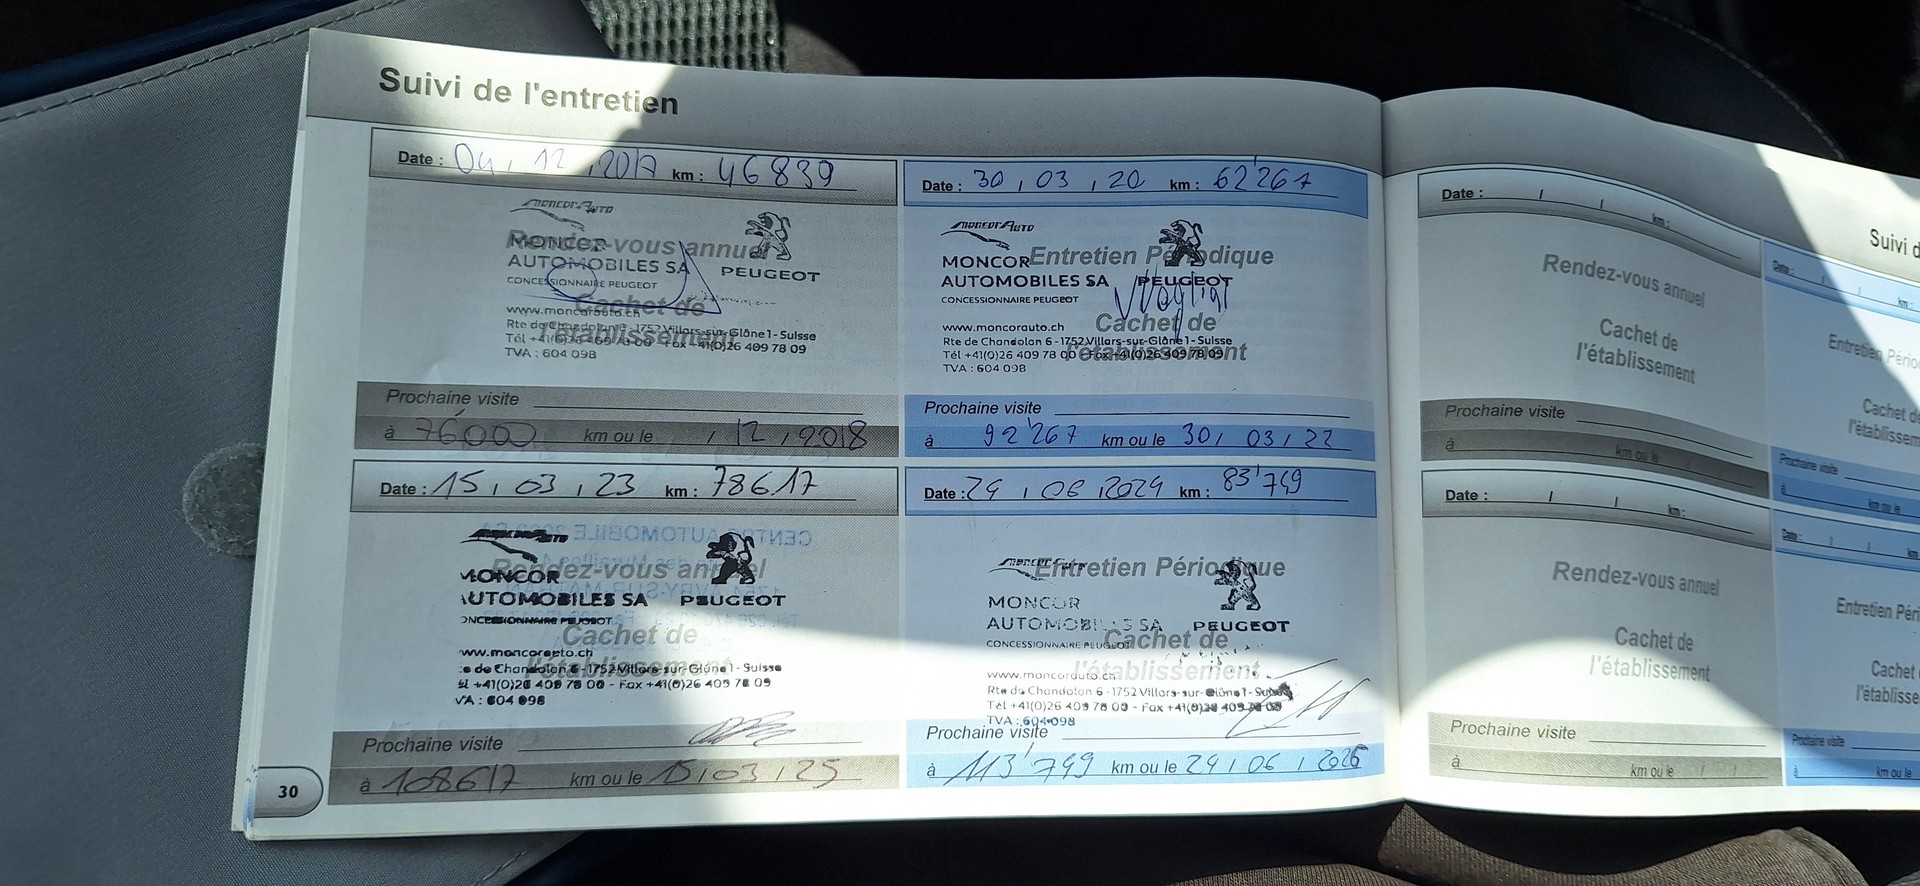 Suivi de l'entretien
Date : 04 , 12 , 2017 km : 46839
MONCOR AUTO
Rendez-vous annuel
MONCOR
AUTOMOBILES SA PEUGEOT
CONCESSIONNAIRE PEUGEOT
Cachet de
l'établissement
www.moncorauto.ch
Rte de Chandolan 6 - 1752 Villars-sur-Glâne 1 - Suisse
Tél +41(0)26 409 78 00 - Fax +41(0)26 409 78 09
TVA : 604 098
Prochaine visite
à 76000 km ou le , 12 , 2018
Date : 30 , 03 , 20 km : 62'267
MONCOR AUTO
Entretien Périodique
MONCOR
AUTOMOBILES SA PEUGEOT
CONCESSIONNAIRE PEUGEOT
Cachet de
l'établissement
www.moncorauto.ch
Rte de Chandolan 6 - 1752 Villars-sur-Glâne 1 - Suisse
Tél +41(0)26 409 78 00 - Fax +41(0)26 409 78 09
TVA : 604 098
Prochaine visite
à 92'267 km ou le 30 , 03 , 22
Date : 15 , 03 , 23 km : 78617
Rendez-vous annuel
MONCOR
AUTOMOBILES SA PEUGEOT
CONCESSIONNAIRE PEUGEOT
Cachet de
l'établissement
www.moncorauto.ch
Rte de Chandolan 6 - 1752 Villars-sur-Glâne 1 - Suisse
Tél +41(0)26 409 78 00 - Fax +41(0)26 409 78 09
TVA : 604 098
Prochaine visite
à 108617 km ou le 15 , 03 , 25
Date : 24 , 06 , 2024 km : 83'749
MONCOR AUTO
Entretien Périodique
MONCOR
AUTOMOBILES SA PEUGEOT
CONCESSIONNAIRE PEUGEOT
Cachet de
l'établissement
www.moncorauto.ch
Rte de Chandolan 6 - 1752 Villars-sur-Glâne 1 - Suisse
Tél +41(0)26 409 78 00 - Fax +41(0)26 409 78 09
TVA : 604 098
Prochaine visite
à 113'749 km ou le 24 , 06 , 2026
30
Suivi d
Date : / / km :
Rendez-vous annuel
Cachet de
l'établissement
Prochaine visite
à km ou le / /
Date : / / km :
Entretien Pério
Cachet de
l'établissem
Prochaine visite
à km ou le
Date : / / km :
Rendez-vous annuel
Cachet de
l'établissement
Prochaine visite
à km ou le / /
Date : / / km
Entretien Péri
Cachet
l'établisse
Prochaine visite
à km ou le